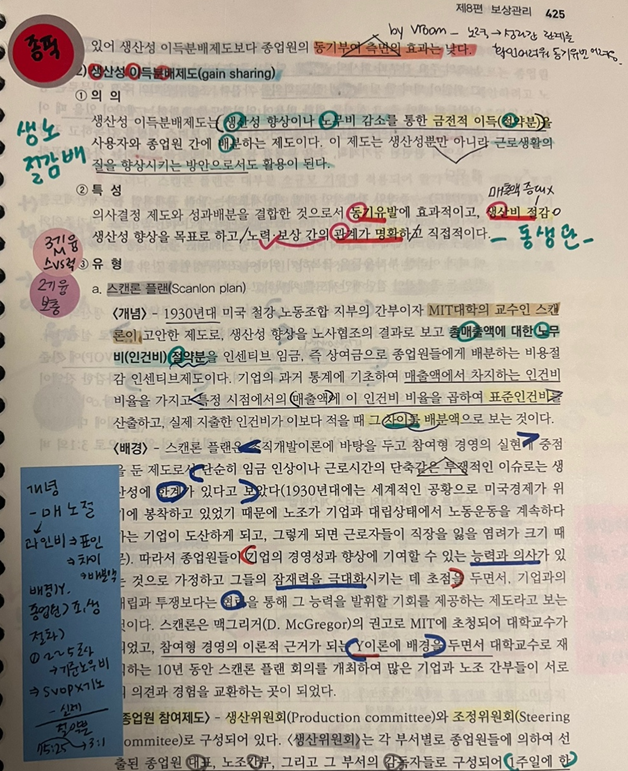 제8편 보상관리 425
by Vroom - 노력 → 성과간 관계를
확인어려워 동기유발 어려움.
종픽
있어 생산성 이득분배제도보다 종업원의 동기부여 측면의 효과는 낮다.
2) 생산성 이득분배제도(gain sharing)
① 의 의
생산성 이득분배제도는 생산성 향상이나 노무비 감소를 통한 금전적 이득(절약분)을
사용자와 종업원 간에 배분하는 제도이다. 이 제도는 생산성뿐만 아니라 근로생활의
질을 향상시키는 방안으로서도 활용이 된다.
생노
절감배
② 특 성
매출액 증대X
의사결정 제도와 성과배분을 결합한 것으로서 동기유발에 효과적이고, 생산비 절감
생산성 향상을 목표로 하고 노력·보상 간의 관계가 명확하고 직접적이다.
- 동생단 -
③ 유 형
a. 스캔론 플랜(Scanlon plan)
<개념> - 1930년대 미국 철강 노동조합 지부의 간부이자 MIT대학의 교수인 스캔
론이 고안한 제도로, 생산성 향상을 노사협조의 결과로 보고 총매출액에 대한 노무
비(인건비) 절약분을 인센티브 임금, 즉 상여금으로 종업원들에게 배분하는 비용절
감 인센티브제도이다. 기업의 과거 통계에 기초하여 매출액에서 차지하는 인건비
비율을 가지고 특정 시점에서의 매출액에 이 인건비 비율을 곱하여 표준인건비를
산출하고, 실제 지출한 인건비가 이보다 적을 때 그 차이를 배분액으로 보는 것이다.
<배경> - 스캔론 플랜은 조직개발이론에 바탕을 두고 참여형 경영의 실현에 중점
을 둔 제도로서 단순히 임금 인상이나 근로시간의 단축같은 투쟁적인 이슈로는 생
산성에 한계가 있다고 보았다(1930년대에는 세계적인 공황으로 미국경제가 위
기에 봉착하고 있었기 때문에 노조가 기업과 대립상태에서 노동운동을 계속하다
가는 기업이 도산하게 되고, 그렇게 되면 근로자들이 직장을 잃을 염려가 크기 때
문). 따라서 종업원들이 기업의 경영성과 향상에 기여할 수 있는 능력과 의사가 있
는 것으로 가정하고 그들의 잠재력을 극대화시키는 데 초점을 두면서, 기업과의
대립과 투쟁보다는 협력을 통해 그 능력을 발휘할 기회를 제공하는 제도라고 보는
것이다. 스캔론은 맥그리거(D. McGregor)의 권고로 MIT에 초청되어 대학교수가
되었고, 참여형 경영의 이론적 근거가 되는 Y이론에 배경을 두면서 대학교수로 재
직하는 10년 동안 스캔론 플랜 회의를 개최하여 많은 기업과 노조 간부들이 서로
의 의견과 경험을 교환하는 곳이 되었다.
<종업원 참여제도> - 생산위원회(Production committee)와 조정위원회(Steering
committee)로 구성되어 있다. <생산위원회>는 각 부서별로 종업원들에 의하여 선
출된 종업원 대표, 노조간부, 그리고 그 부서의 감독자들로 구성되어 1주일에 한
개념
- 매노절
과인비 → 표인
→ 차이
→ 배분액
배경) Y.
종업원) 조, 생
절차)